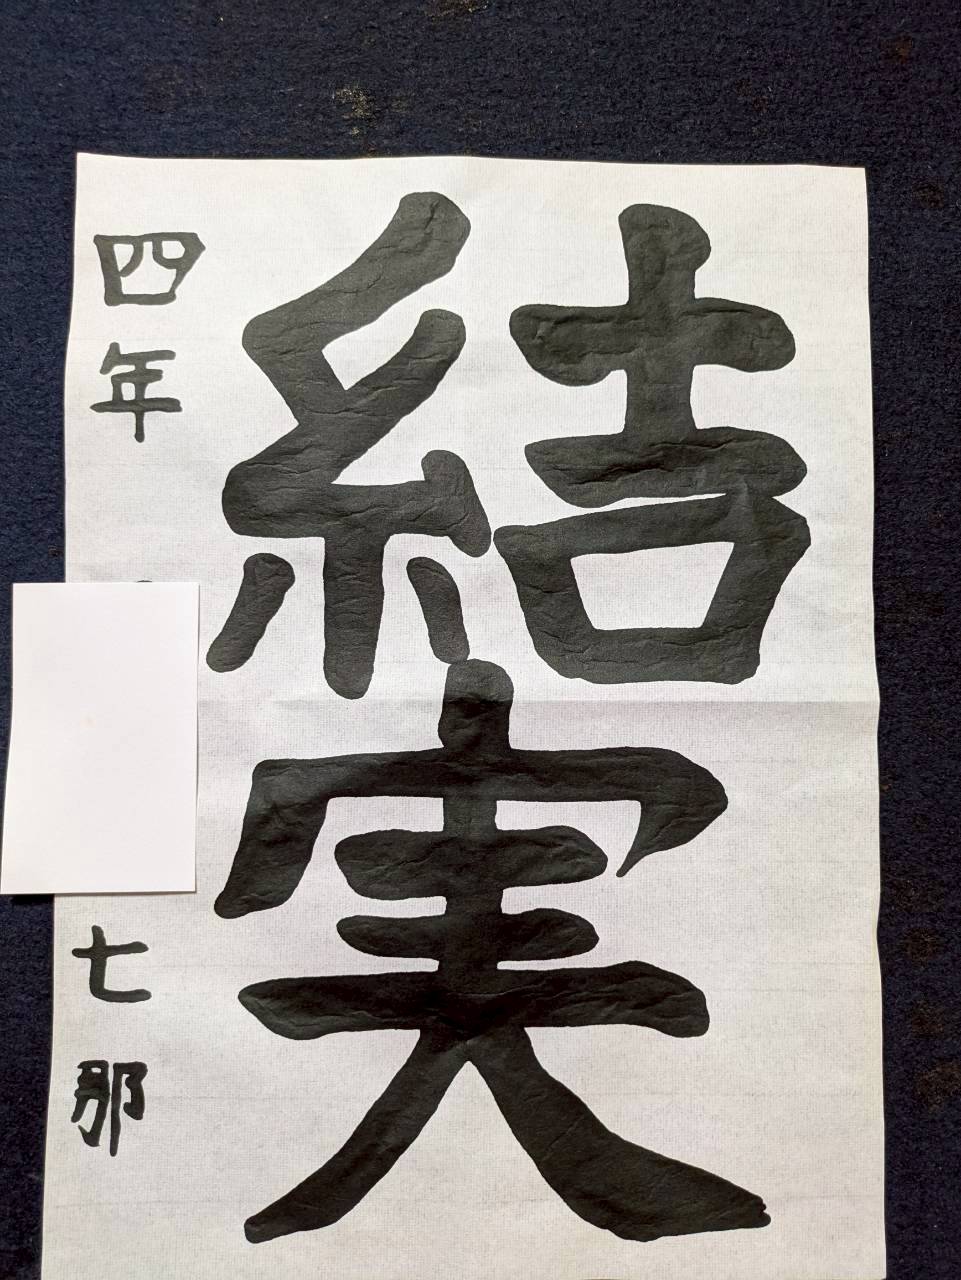 結実
四年
七那